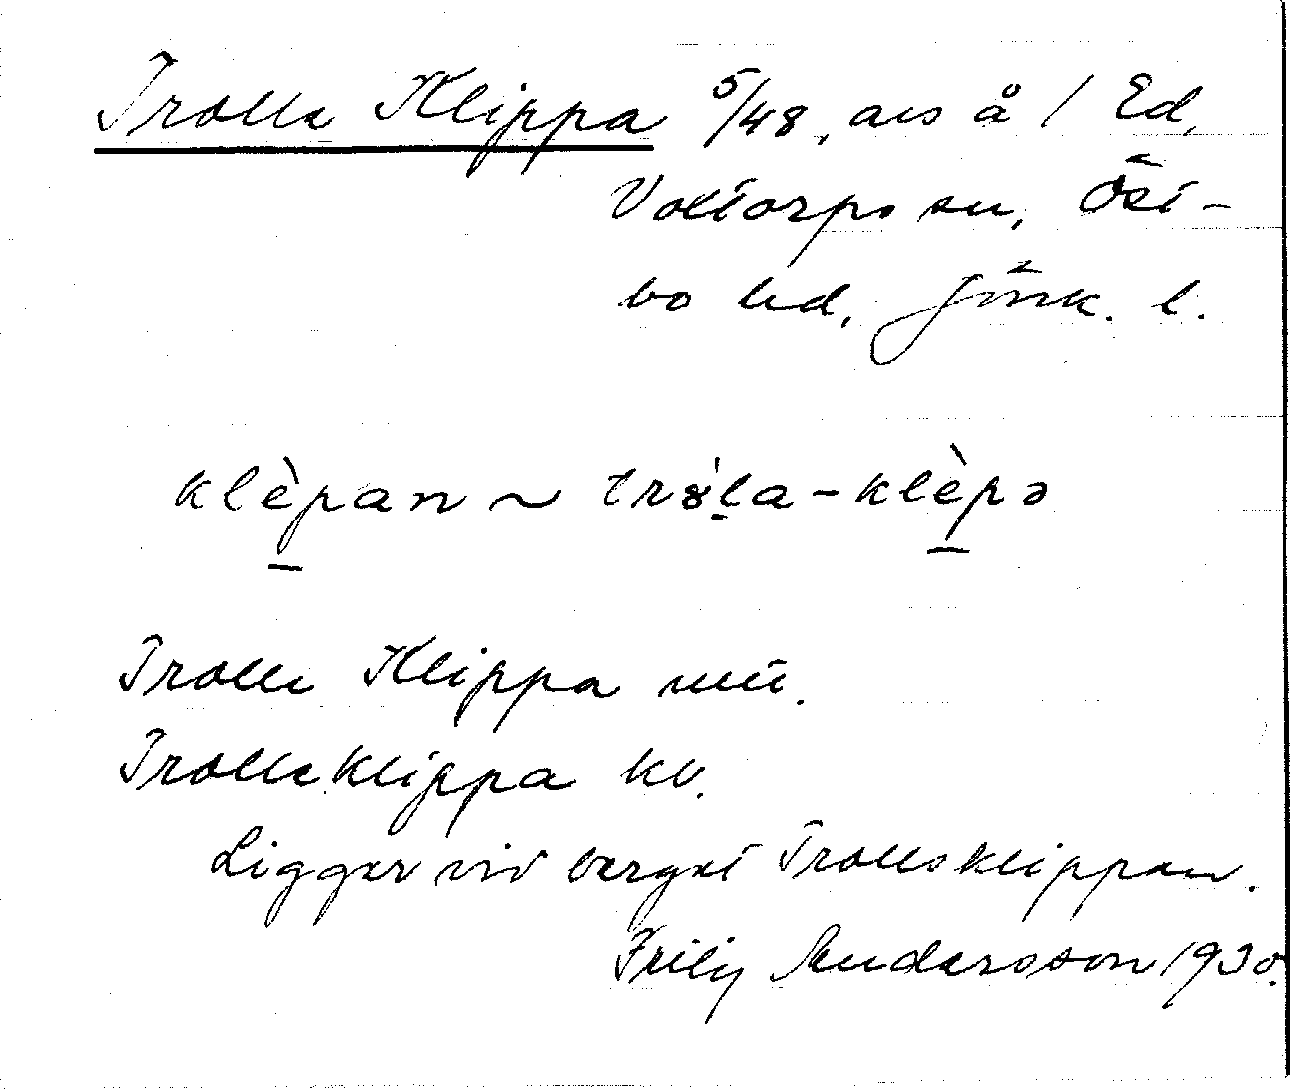 Trolle Klippa 5/48, avs å / Ed,
Voxtorps sn, Öst-
bo hd, Jönk. l.
klèpan ~ trɤ̀la-klèpə
Trolle Klippa mtl.
Trolleklippa kb.
Ligger vid berget Trollsklippan.
Frily Andersson 1930.